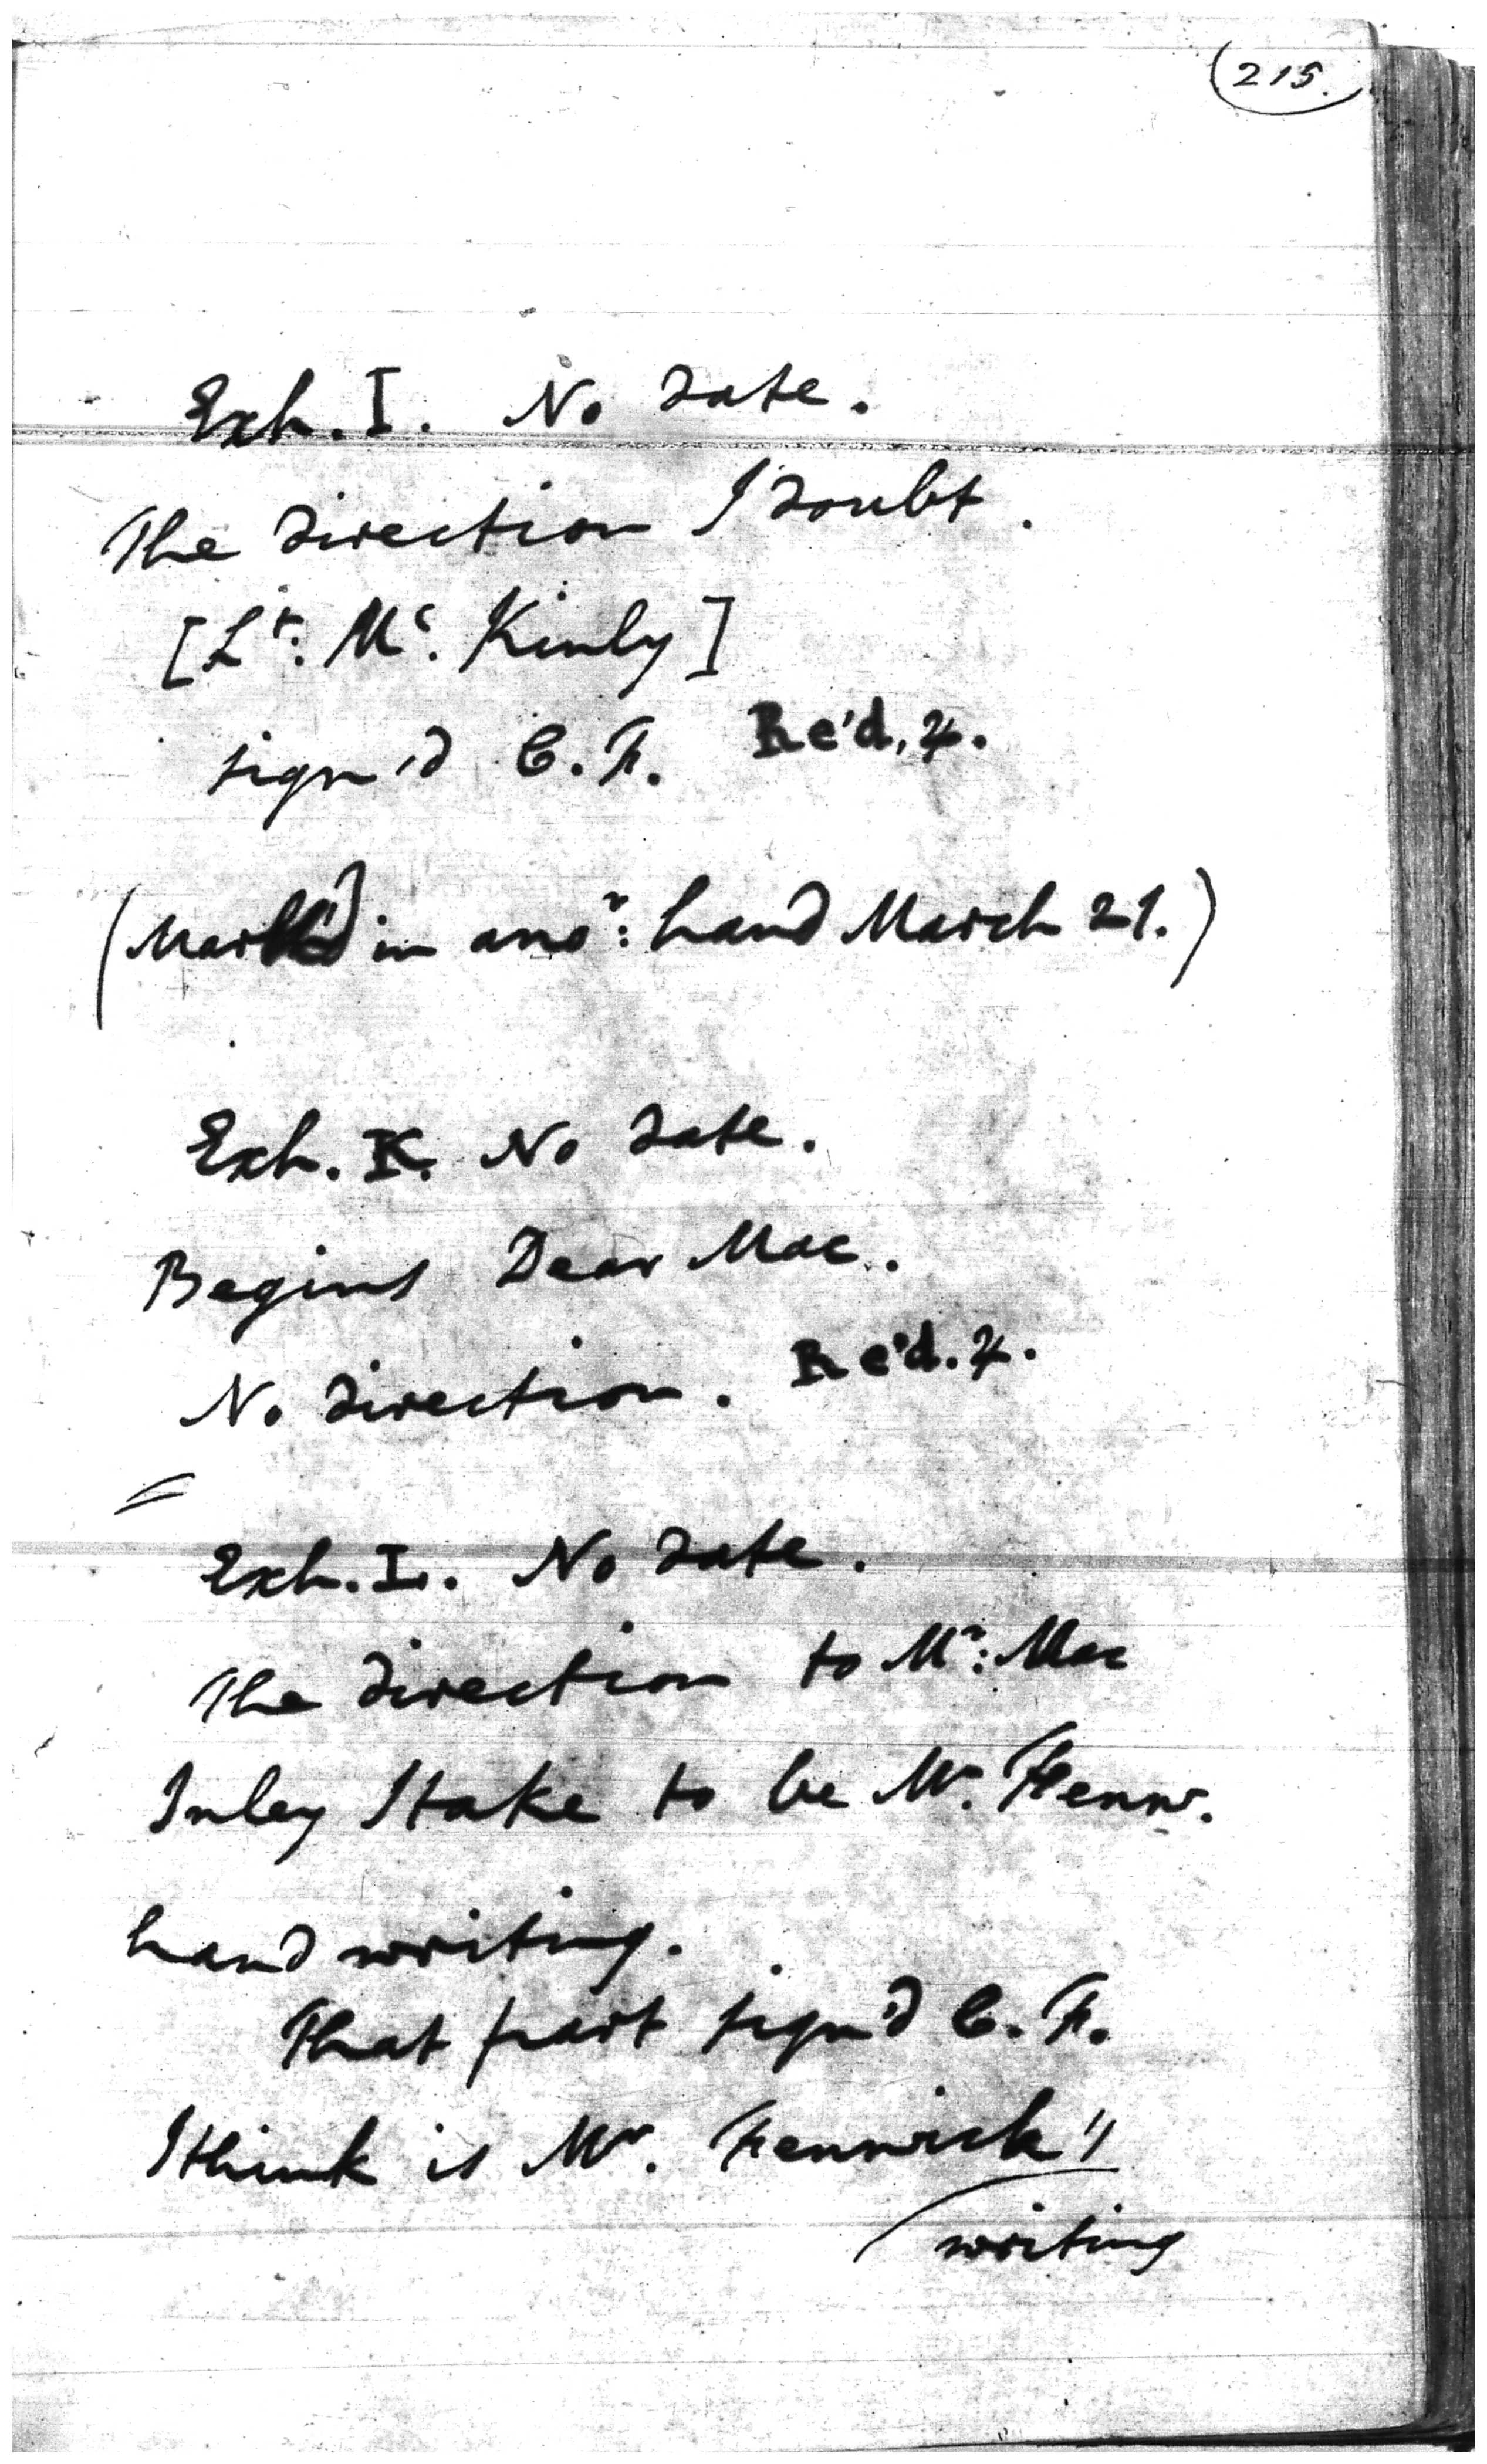 (215.
Exh. I. No date.
The direction I doubt.
[Lt: Mc. Kinly]
sign'd C. F. Re'd. 4.
(Mark'd in anor: hand March 21.)
Exh. K. No date.
Begins Dear Mac.
No direction. Re'd. 4.
=
Exh. L. No date.
The direction to Mr: Mac
Inley I take to be Mr. Fenw.
hand writing.
That part sign'd C. F.
I think is Mr. Fenwick's
writing